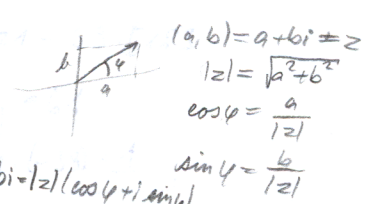 (a, b) = a + bi = z
b φ
a
|z| = √a²+b²
cos φ = a/|z|
sin φ = b/|z|
bi = |z| (cos φ + i sin φ)